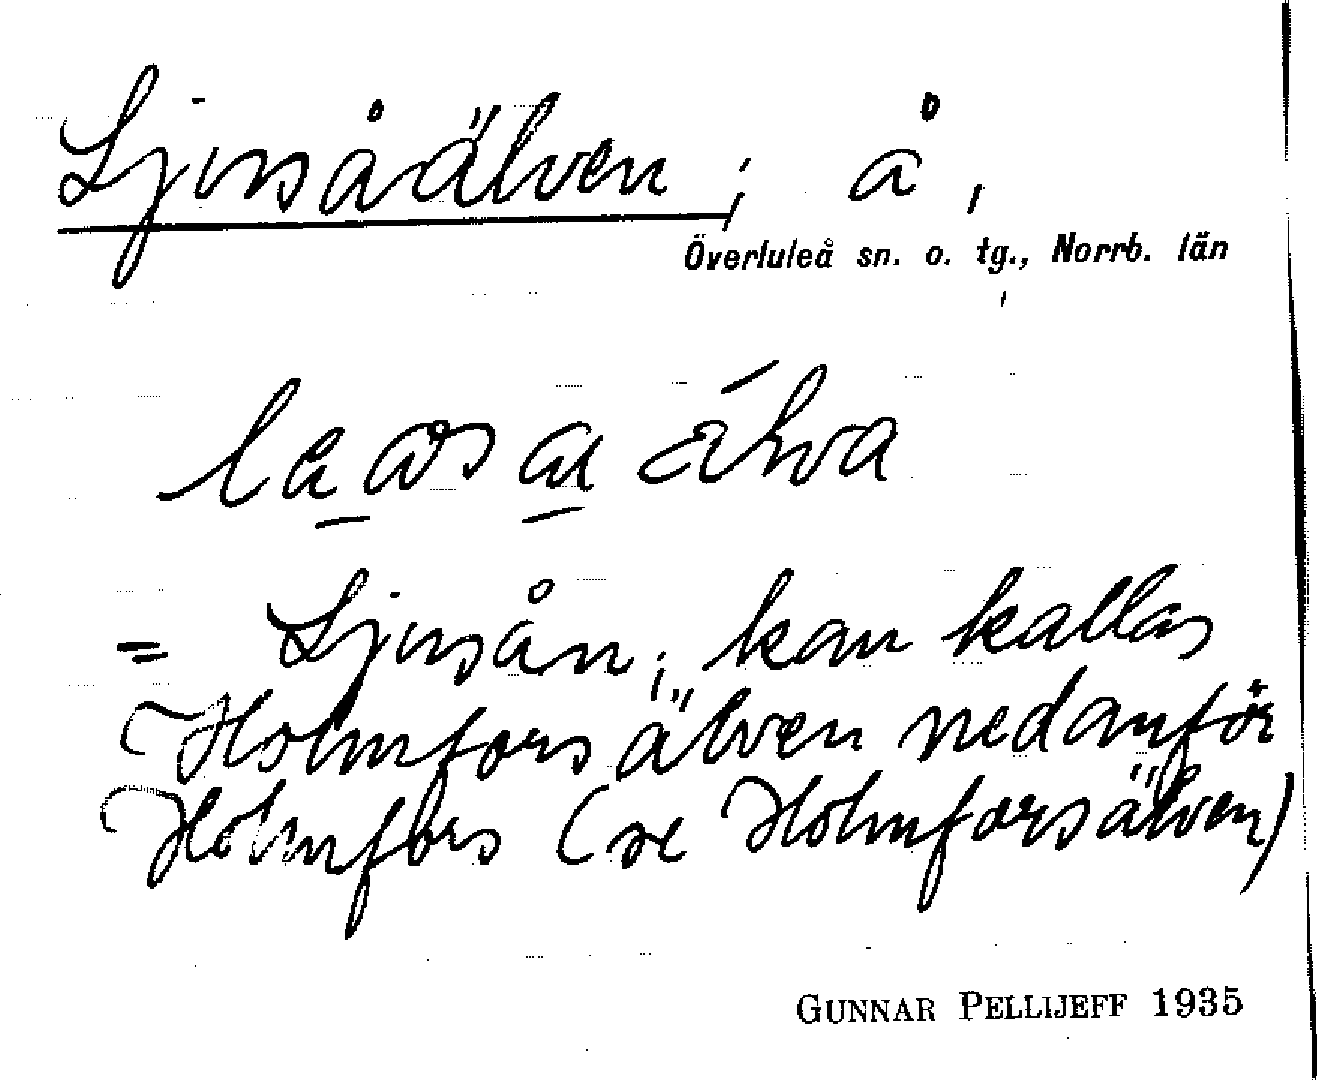 Ljusåälven; å,
Överluleå sn. o. tg., Norrb. län
= Ljusån; kan kallas
Holmforsälven nedanför
Holmfors (se Holmforsälven)
GUNNAR PELLIJEFF 1935